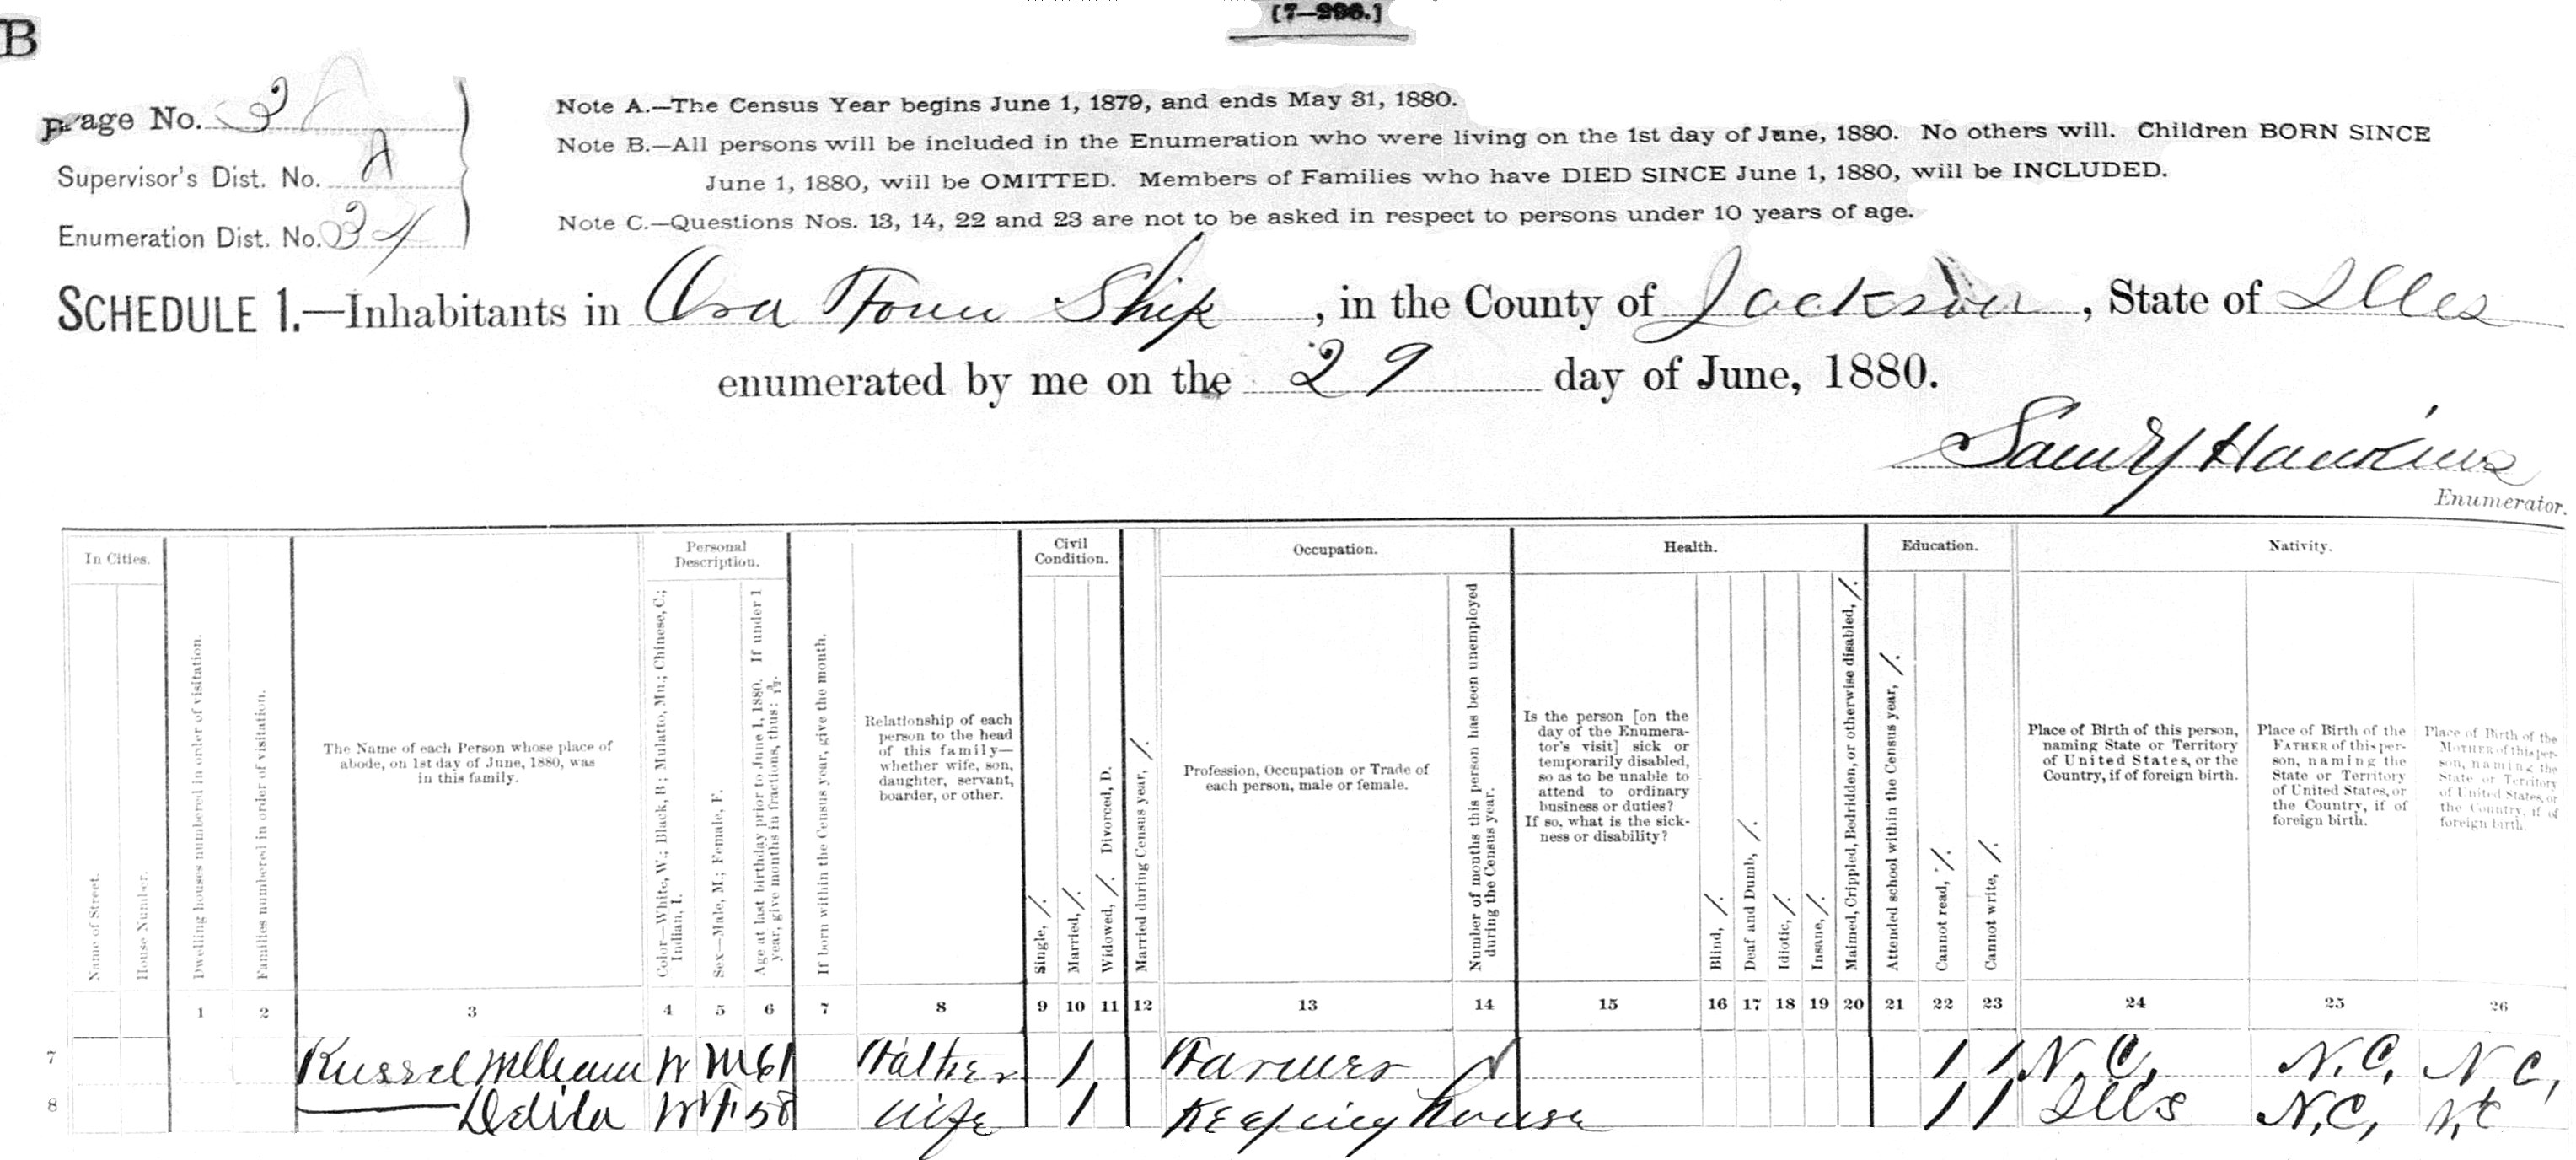 B
[7-296.]
Page No. 3
Supervisor's Dist. No. 2
Enumeration Dist. No. 34
Note A.—The Census Year begins June 1, 1879, and ends May 31, 1880.
Note B.—All persons will be included in the Enumeration who were living on the 1st day of June, 1880. No others will. Children BORN SINCE
June 1, 1880, will be OMITTED. Members of Families who have DIED SINCE June 1, 1880, will be INCLUDED.
Note C.—Questions Nos. 13, 14, 22 and 23 are not to be asked in respect to persons under 10 years of age.
SCHEDULE 1.—Inhabitants in Ora Town Ship, in the County of Jackson, State of Ills
enumerated by me on the 29 day of June, 1880.
Saml Y Hawkins
Enumerator.
In Cities.
Name of Street.
House Number.
Dwelling houses numbered in order of visitation.
Families numbered in order of visitation.
The Name of each Person whose place of
abode, on 1st day of June, 1880, was
in this family.
Personal
Description.
Color—White, W.; Black, B.; Mulatto, Mu.; Chinese, C.;
Indian, I.
Sex—Male, M.; Female, F.
Age at last birthday prior to June 1, 1880. If under 1
year, give months in fractions, thus: 3/12.
If born within the Census year, give the month.
Relationship of each
person to the head
of this family—
whether wife, son,
daughter, servant,
boarder, or other.
Civil
Condition.
Single, /.
Married, /.
Widowed, /. Divorced, D.
Married during Census year, /.
Occupation.
Profession, Occupation or Trade of
each person, male or female.
Number of months this person has been unemployed
during the Census year.
Health.
Is the person [on the
day of the Enumera-
tor's visit] sick or
temporarily disabled,
so as to be unable to
attend to ordinary
business or duties?
If so, what is the sick-
ness or disability?
Blind, /.
Deaf and Dumb, /.
Idiotic, /.
Insane, /.
Maimed, Crippled, Bedridden, or otherwise disabled, /.
Education.
Attended school within the Census year, /.
Cannot read, /.
Cannot write, /.
Nativity.
Place of Birth of this person,
naming State or Territory
of United States, or the
Country, if of foreign birth.
Place of Birth of the
FATHER of this per-
son, naming the
State or Territory
of United States, or
the Country, if of
foreign birth.
Place of Birth of the
MOTHER of this per-
son, naming the
State or Territory
of United States, or
the Country, if of
foreign birth.
1 2 3 4 5 6 7 8 9 10 11 12 13 14 15 16 17 18 19 20 21 22 23 24 25 26
7 Russel William W M 61 Father 1 Farmer 1 1 N.C. N.C. N.C.
8 —— Delila W F 58 Wife 1 Keeping house 1 1 Ills N.C. N.C